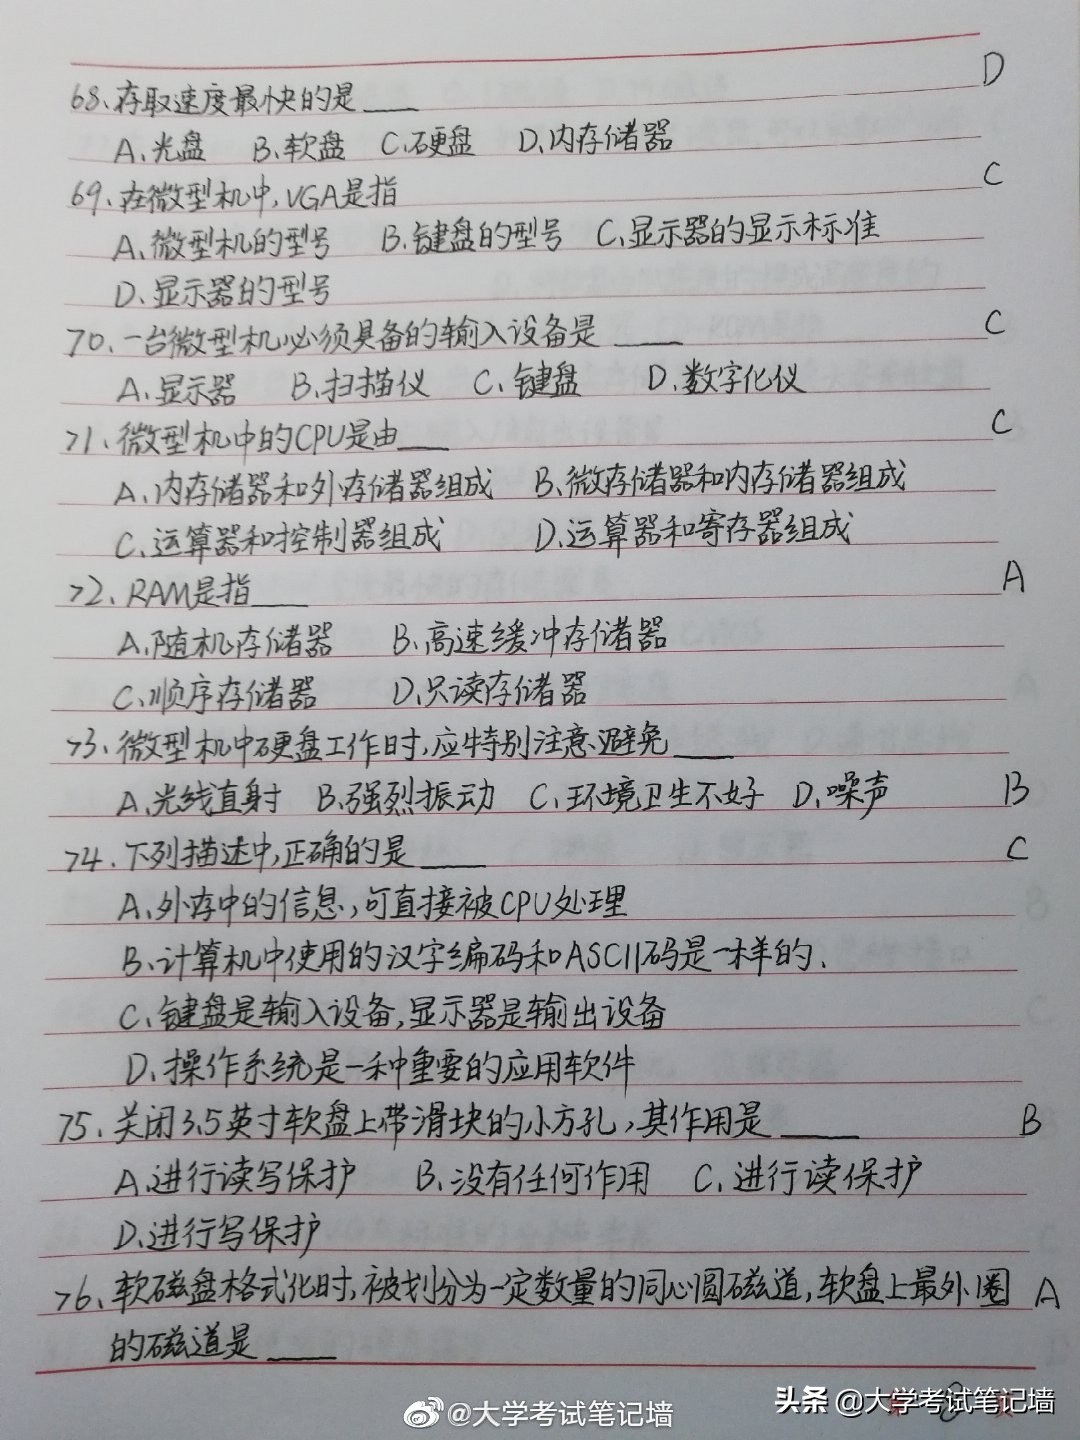 68、存取速度最快的是____ D
A、光盘 B、软盘 C、硬盘 D、内存储器
69、在微型机中,VGA是指 C
A、微型机的型号 B、键盘的型号 C、显示器的显示标准
D、显示器的型号
70、一台微型机必须具备的输入设备是____ C
A、显示器 B、扫描仪 C、键盘 D、数字化仪
71、微型机中的CPU是由____ C
A、内存储器和外存储器组成 B、微存储器和内存储器组成
C、运算器和控制器组成 D、运算器和寄存器组成
72、RAM是指____ A
A、随机存储器 B、高速缓冲存储器
C、顺序存储器 D、只读存储器
73、微型机中硬盘工作时,应特别注意避免____
A、光线直射 B、强烈振动 C、环境卫生不好 D、噪声 B
74、下列描述中,正确的是____ C
A、外存中的信息,可直接被CPU处理
B、计算机中使用的汉字编码和ASCII码是一样的.
C、键盘是输入设备,显示器是输出设备
D、操作系统是一种重要的应用软件
75、关闭3.5英寸软盘上带滑块的小方孔,其作用是____ B
A、进行读写保护 B、没有任何作用 C、进行读保护
D、进行写保护
76、软磁盘格式化时,被划分为一定数量的同心圆磁道,软盘上最外圈 A
的磁道是____
@大学考试笔记墙
头条@大学考试笔记墙